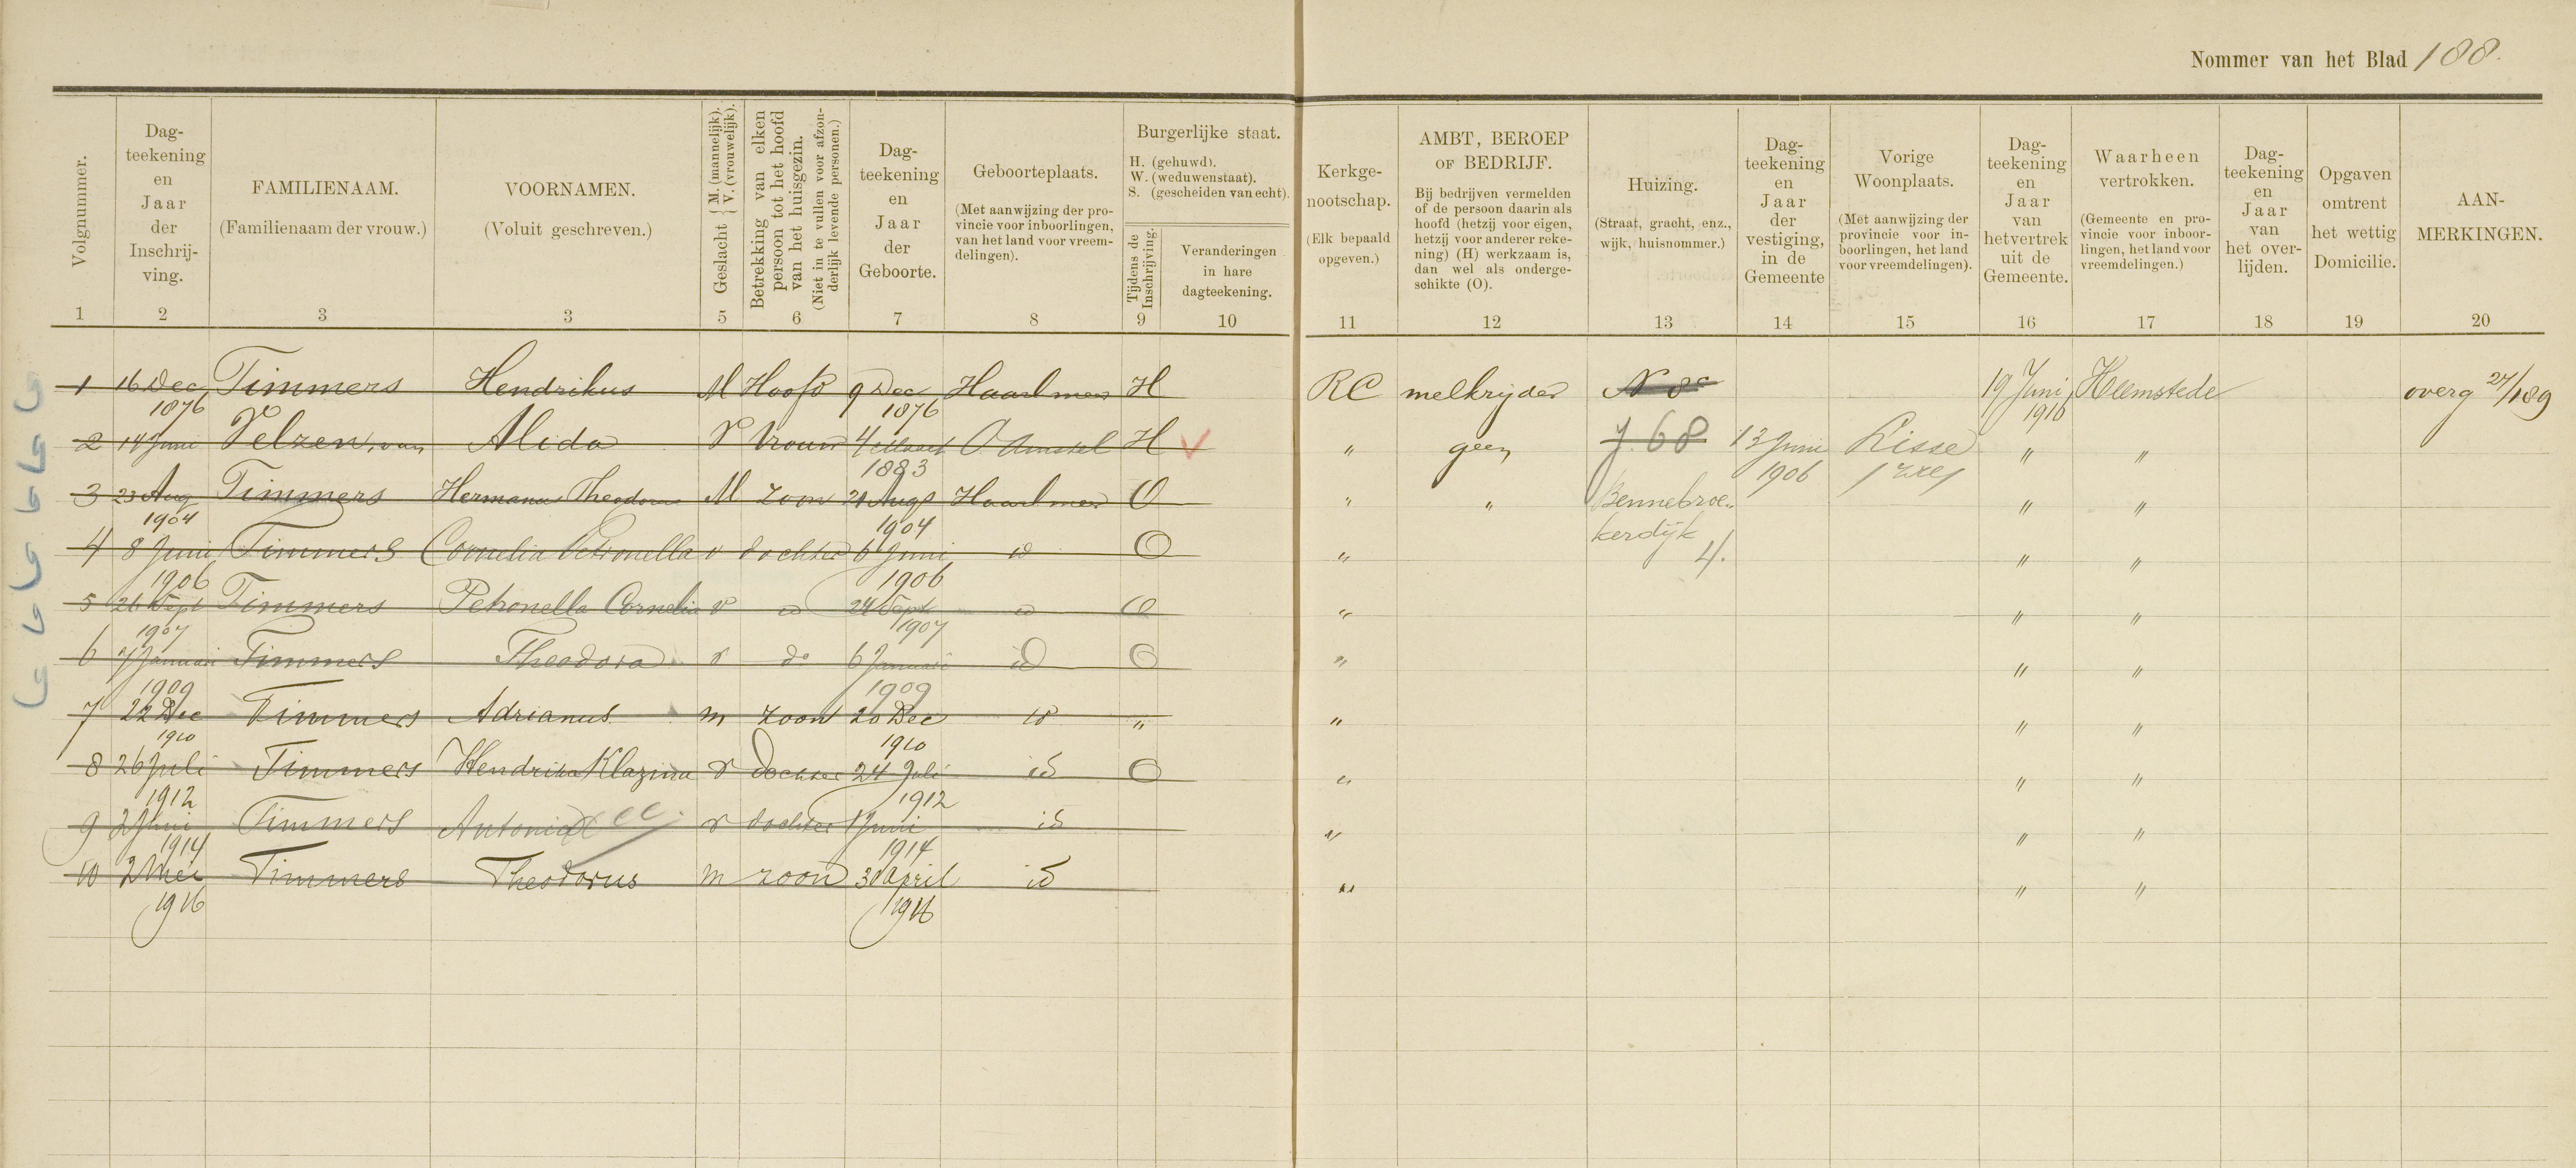 Nommer van het Blad 188.
Volgnummer.
Dag-
teekening
en
Jaar
der
Inschrij-
ving.
FAMILIENAAM.
(Familienaam der vrouw.)
VOORNAMEN.
(Voluit geschreven.)
Geslacht { M. (mannelijk).
V. (vrouwelijk).
Betrekking van elken
persoon tot het hoofd
van het huisgezin.
(Niet in te vullen voor afzon-
derlijk levende personen.)
Dag-
teekening
en
Jaar
der
Geboorte.
Geboorteplaats.
(Met aanwijzing der pro-
vincie voor inboorlingen,
van het land voor vreem-
delingen).
Burgerlijke staat.
H. (gehuwd).
W. (weduwenstaat).
S. (gescheiden van echt).
Tijdens de
Inschrijving.
Veranderingen
in hare
dagteekening.
Kerkge-
nootschap.
(Elk bepaald
opgeven.)
AMBT, BEROEP
OF BEDRIJF.
Bij bedrijven vermelden
of de persoon daarin als
hoofd (hetzij voor eigen,
hetzij voor anderer reke-
ning) (H) werkzaam is,
dan wel als onderge-
schikte (O).
Huizing.
(Straat, gracht, enz.,
wijk, huisnommer.)
Dag-
teekening
en
Jaar
der
vestiging,
in de
Gemeente
Vorige
Woonplaats.
(Met aanwijzing der
provincie voor in-
boorlingen, het land
voor vreemdelingen).
Dag-
teekening
en
Jaar
van
hetvertrek
uit de
Gemeente.
Waarheen
vertrokken.
(Gemeente en pro-
vincie voor inboor-
lingen, het land voor
vreemdelingen.)
Dag-
teekening
en
Jaar
van
het over-
lijden.
Opgaven
omtrent
het wettig
Domicilie.
AAN-
MERKINGEN.
1 2 3 3 5 6 7 8 9 10 11 12 13 14 15 16 17 18 19 20
1 16 Dec 1876 Timmers Hendrikus M Hoofd 9 Dec 1876 Haarlmeer H RC melkrijder N 8c 19 Juni 1916 Heemstede overg 27/189
2 14 Juni Velzen, van Alida V Vrouw 4 Maart 1883 O Amstel H V " geen J. 68 13 Juni 1906 Lisse " "
3 23 Aug 1904 Timmers Hermanus Theodorus M zoon 21 Aug 1904 Haarlmeer O " " Bennebroe-
kerdijk
4.
" "
4 8 Juni 1906 Timmers Cornelia Petronella v dochter 6 Juni 1906 id O " " "
5 26 Sept 1907 Timmers Petronella Cornelia v id 24 Sept 1907 id O " " "
6 7 Januari 1909 Timmers Theodora v do 6 Januari 1909 id O " " "
7 22 Dec 1910 Timmers Adrianus m zoon 20 Dec 1910 id " " " "
8 26 Juli 1912 Timmers Hendrika Klazina v dochter 24 Juli 1912 id O " " "
9 2 Juni 1914 Timmers Antonia v dochter 1 Juni 1914 id " " "
10 2 Mei 1916 Timmers Theodorus m zoon 30 April 1916 id " " "